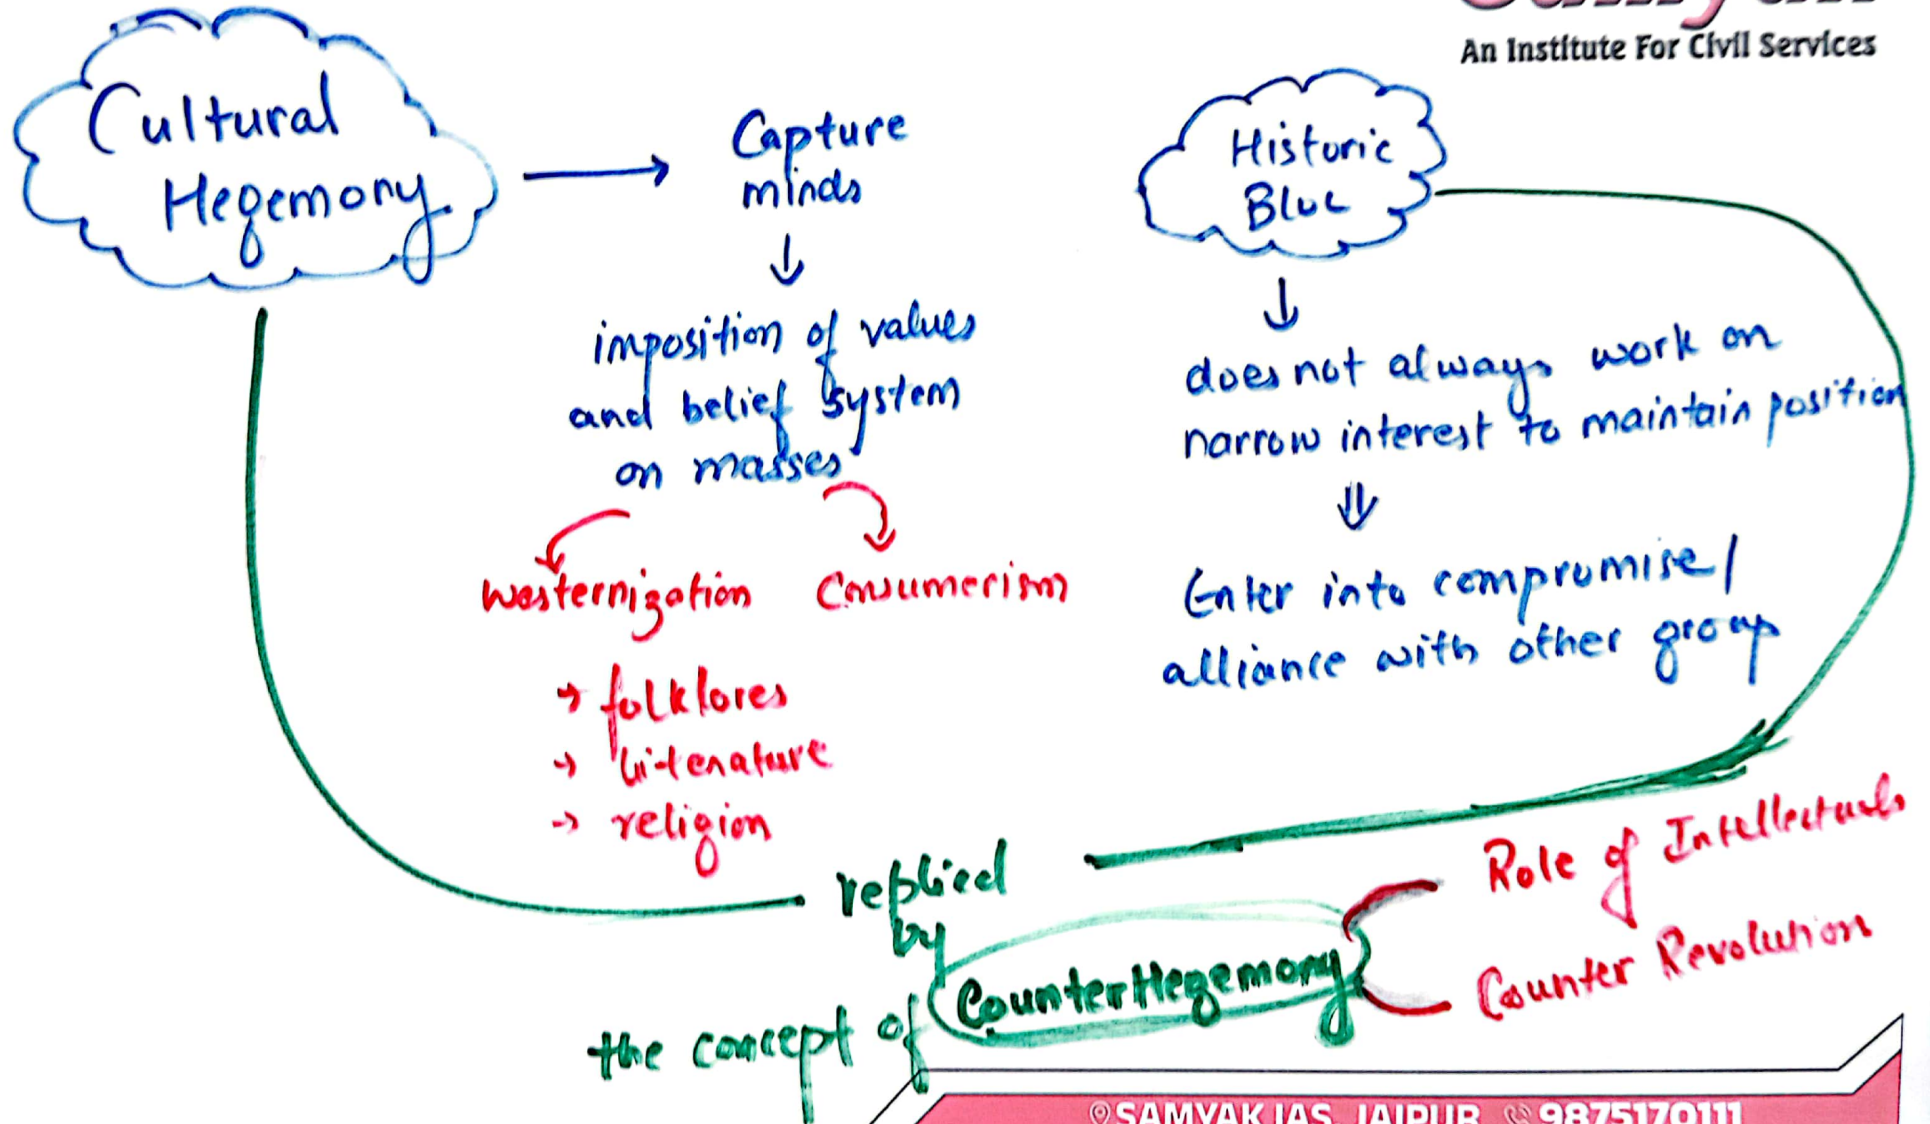 An Institute For Civil Services
Cultural
Hegemony
Capture
minds
imposition of values
and belief system
on masses
Westernization
Consumerism
→ folklores
→ literature
→ religion
Historic
Bloc
does not always work on
narrow interest to maintain position
Enter into compromise/
alliance with other group
replied
by
the concept of CounterHegemony
Role of Intellectuals
Counter Revolution
SAMYAK IAS, JAIPUR 9875170111